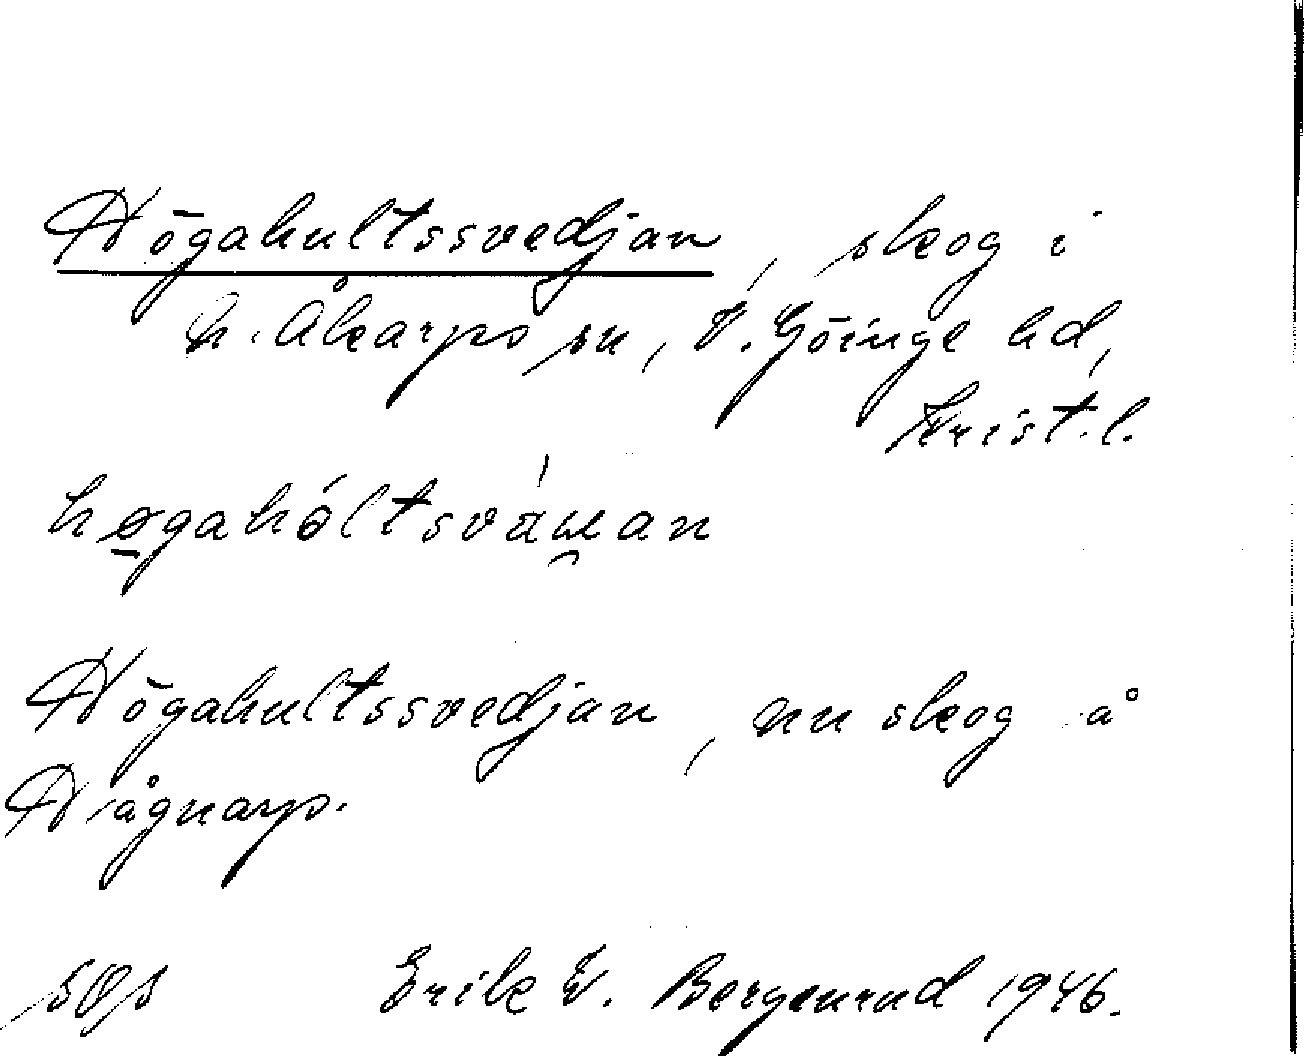 Högahultssvedjan, skog i
N. Åkarps sn, V. Göinge hd,
Krist. l.
Högahultssvedjan, nu skog å
Hågnarp.
Erik V. Bergenrud 1946.